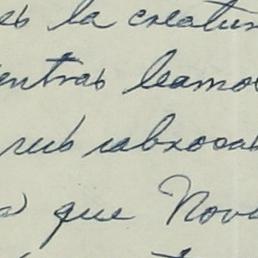 es la creatur
entras leamos
sus sabrosas
a que Nov